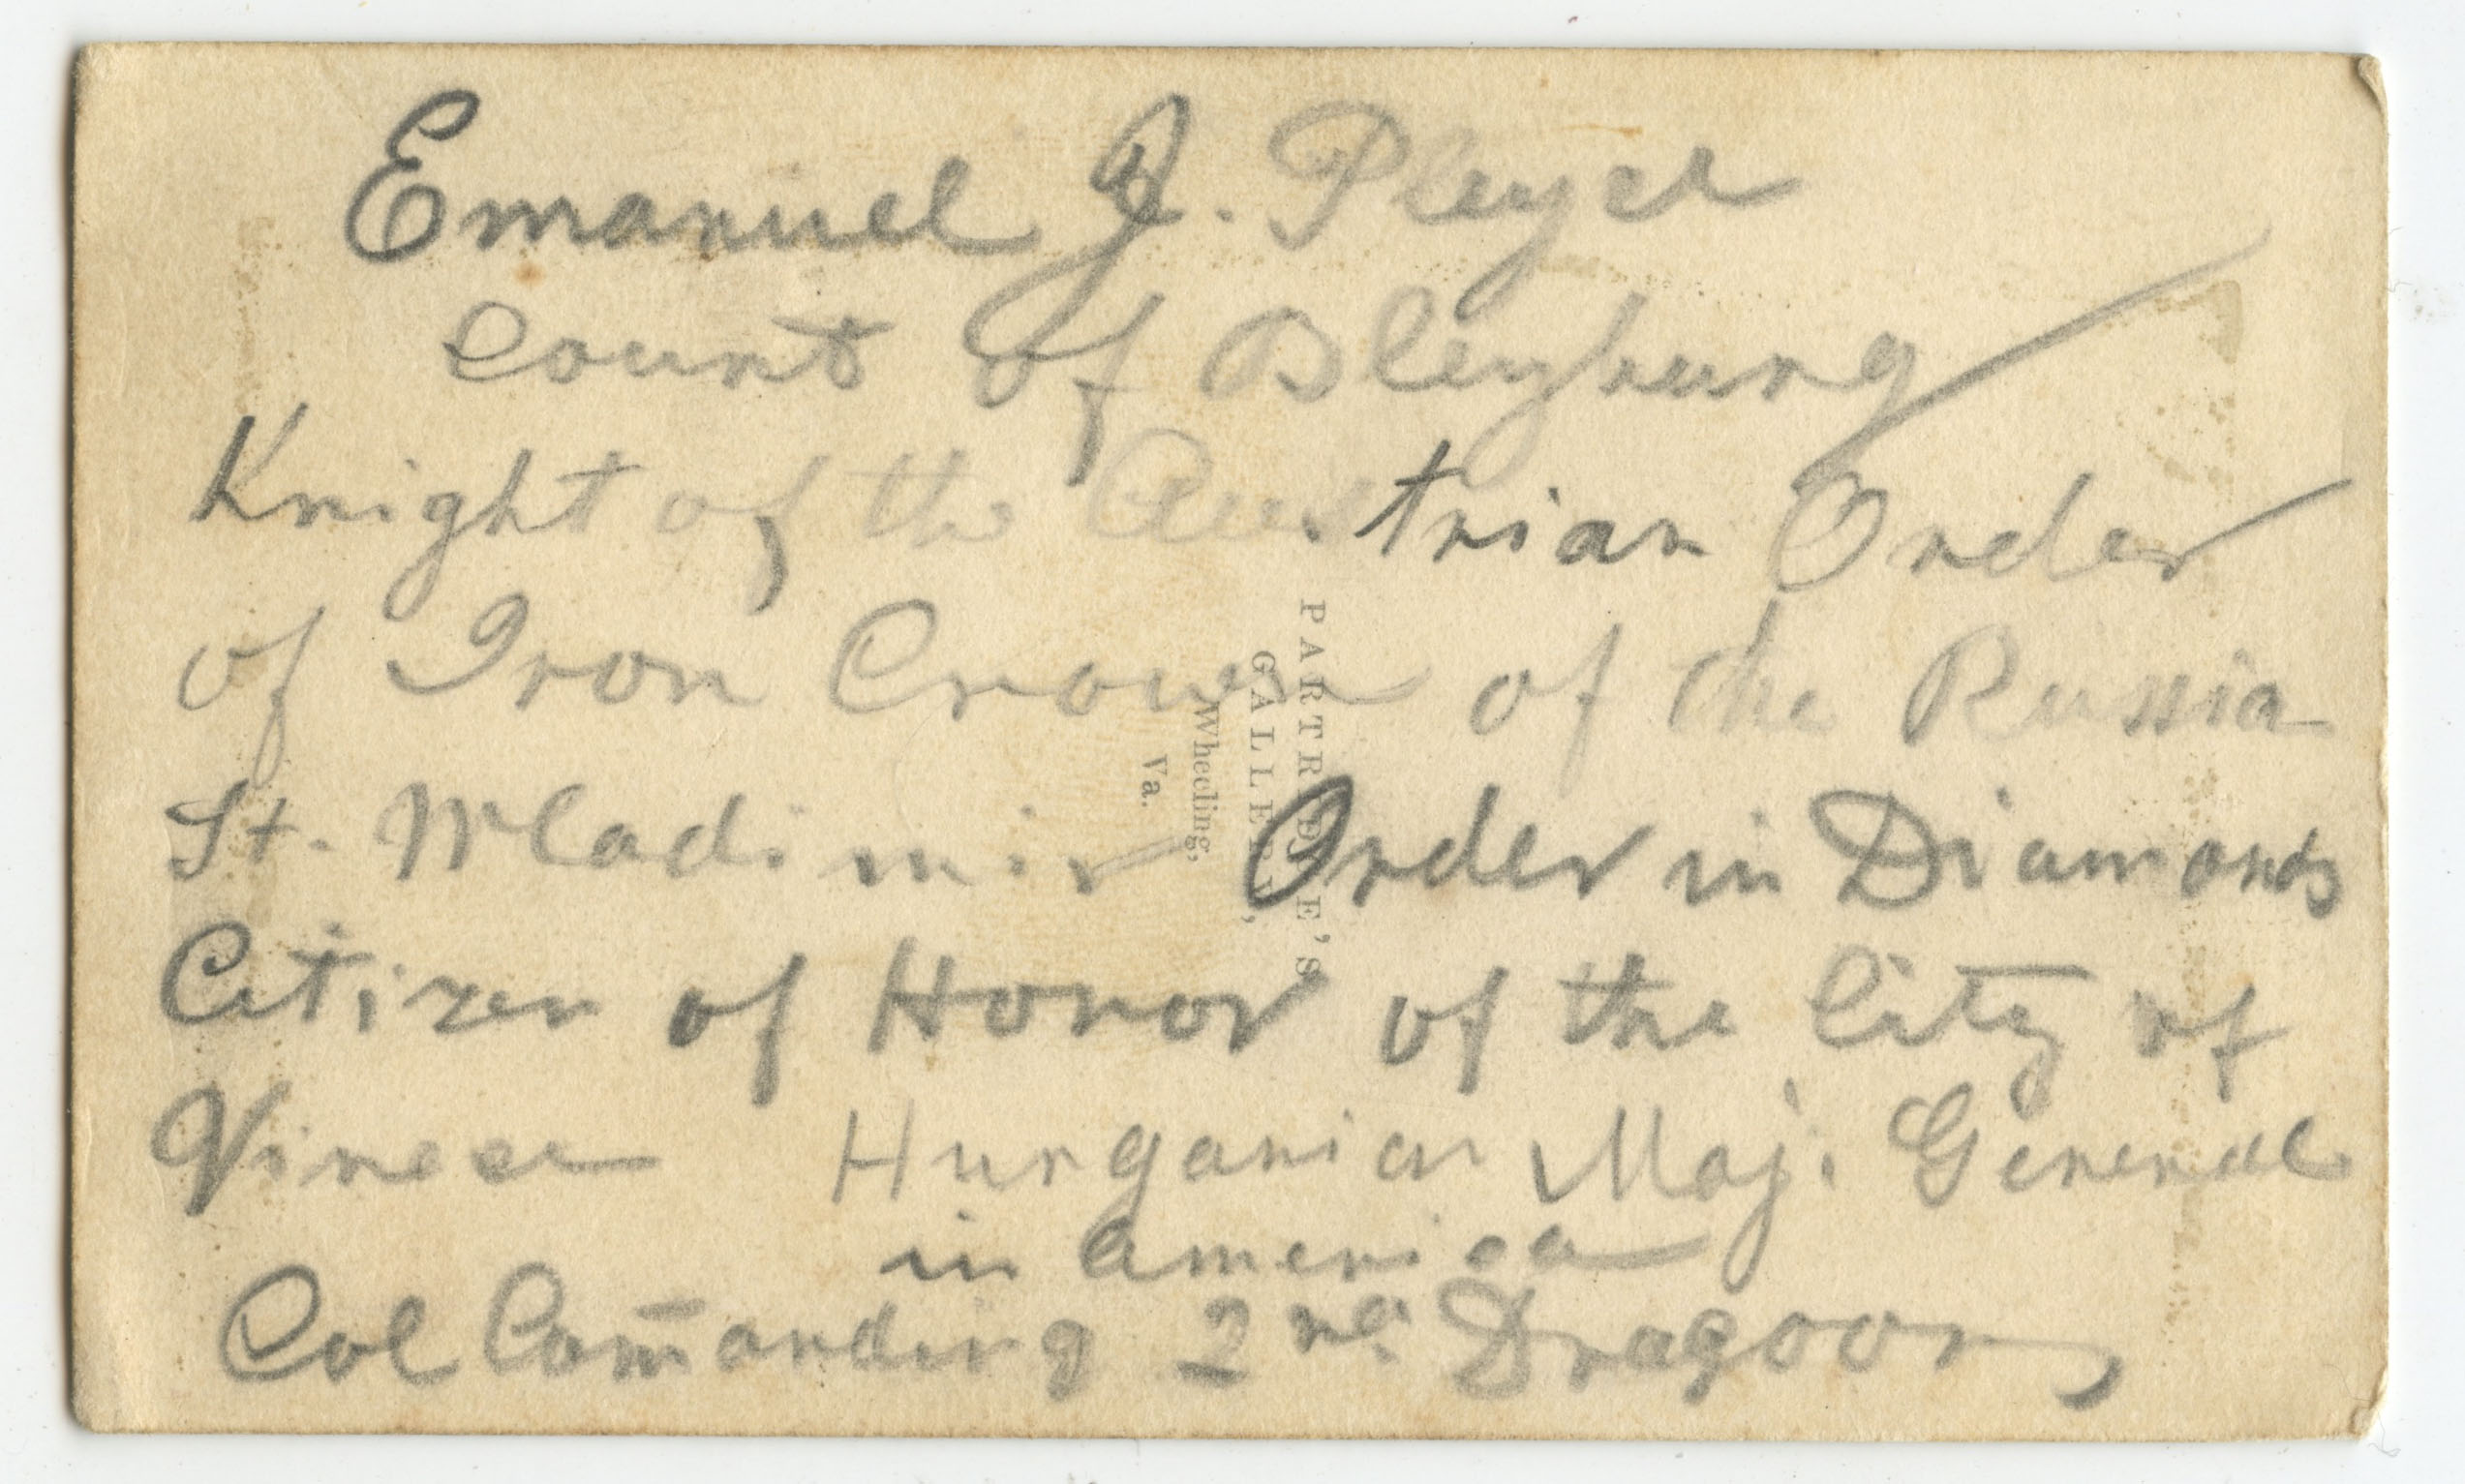 Emanuel J. Pleyel
Count of Bleyburg
Knight of the Austrian Order
of Iron Crown of the Russia
St. Wladimir Order in Diamonds
Citizen of Honor of the City of
Hungarian Maj. General
in America
Col Com̄anding 2nd Dragoons
PARTRIDGE'S
GALLERY,
Wheeling,
Va.